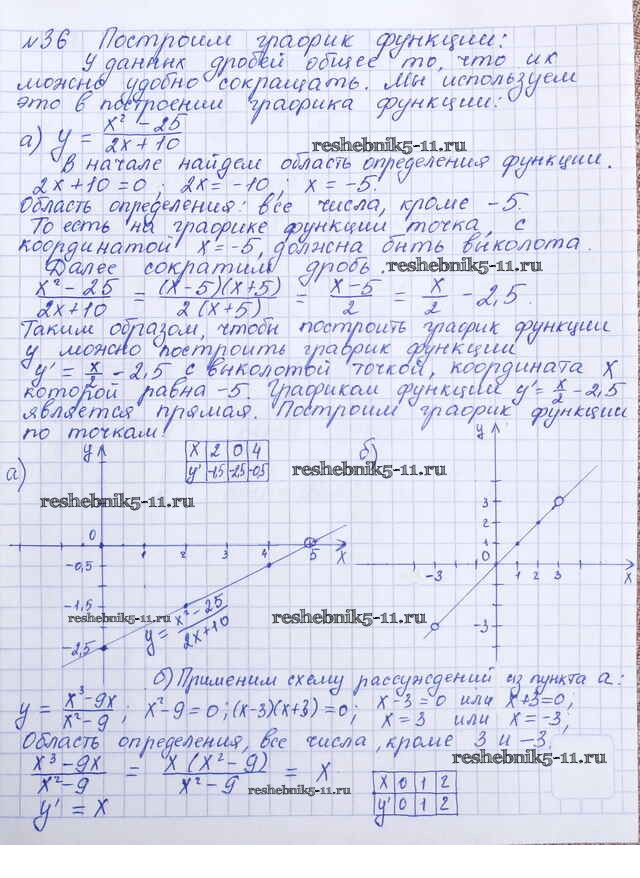 №36 Построим график функции:
У данных дробей общее то, что их
можно удобно сокращать. Мы используем
это в построении графика функции:
а) y = (x² - 25)/(2x + 10)
reshebnik5-11.ru
В начале найдем область определения функции.
2x+10=0; 2x=-10; x=-5.
Область определения: все числа, кроме -5.
То есть на графике функции точка, с
координатой x=-5, должна быть выколота.
Далее сократим дробь,
reshebnik5-11.ru
(x² - 25)/(2x + 10) = (x-5)(x+5)/2(x+5) = (x-5)/2 = x/2 - 2,5.
Таким образом, чтобы построить график функции
y можно построить график функции
y' = x/2 - 2,5 с выколотой точкой, координата x
которой равна -5. Графиком функции y' = x/2 - 2,5
является прямая. Построим график функции
по точкам:
а) y
x 2 0 4
y' -1,5 -2,5 -0,5
reshebnik5-11.ru
б) y
reshebnik5-11.ru
0 1 2 3 4 5 x
-0,5
-1,5
-2,5
y = (x² - 25)/(2x + 10)
reshebnik5-11.ru
3
2
1
0
-3 1 2 3 x
-3
reshebnik5-11.ru
б) Применим схему рассуждений из пункта а:
y = (x³ - 9x)/(x² - 9); x²-9=0; (x-3)(x+3)=0; x-3=0 или x+3=0;
x=3 или x=-3;
Область определения, все числа, кроме 3 и -3.
reshebnik5-11.ru
(x³ - 9x)/(x² - 9) = x(x² - 9)/(x² - 9) = x
reshebnik5-11.ru
x 0 1 2
y' 0 1 2
y' = x